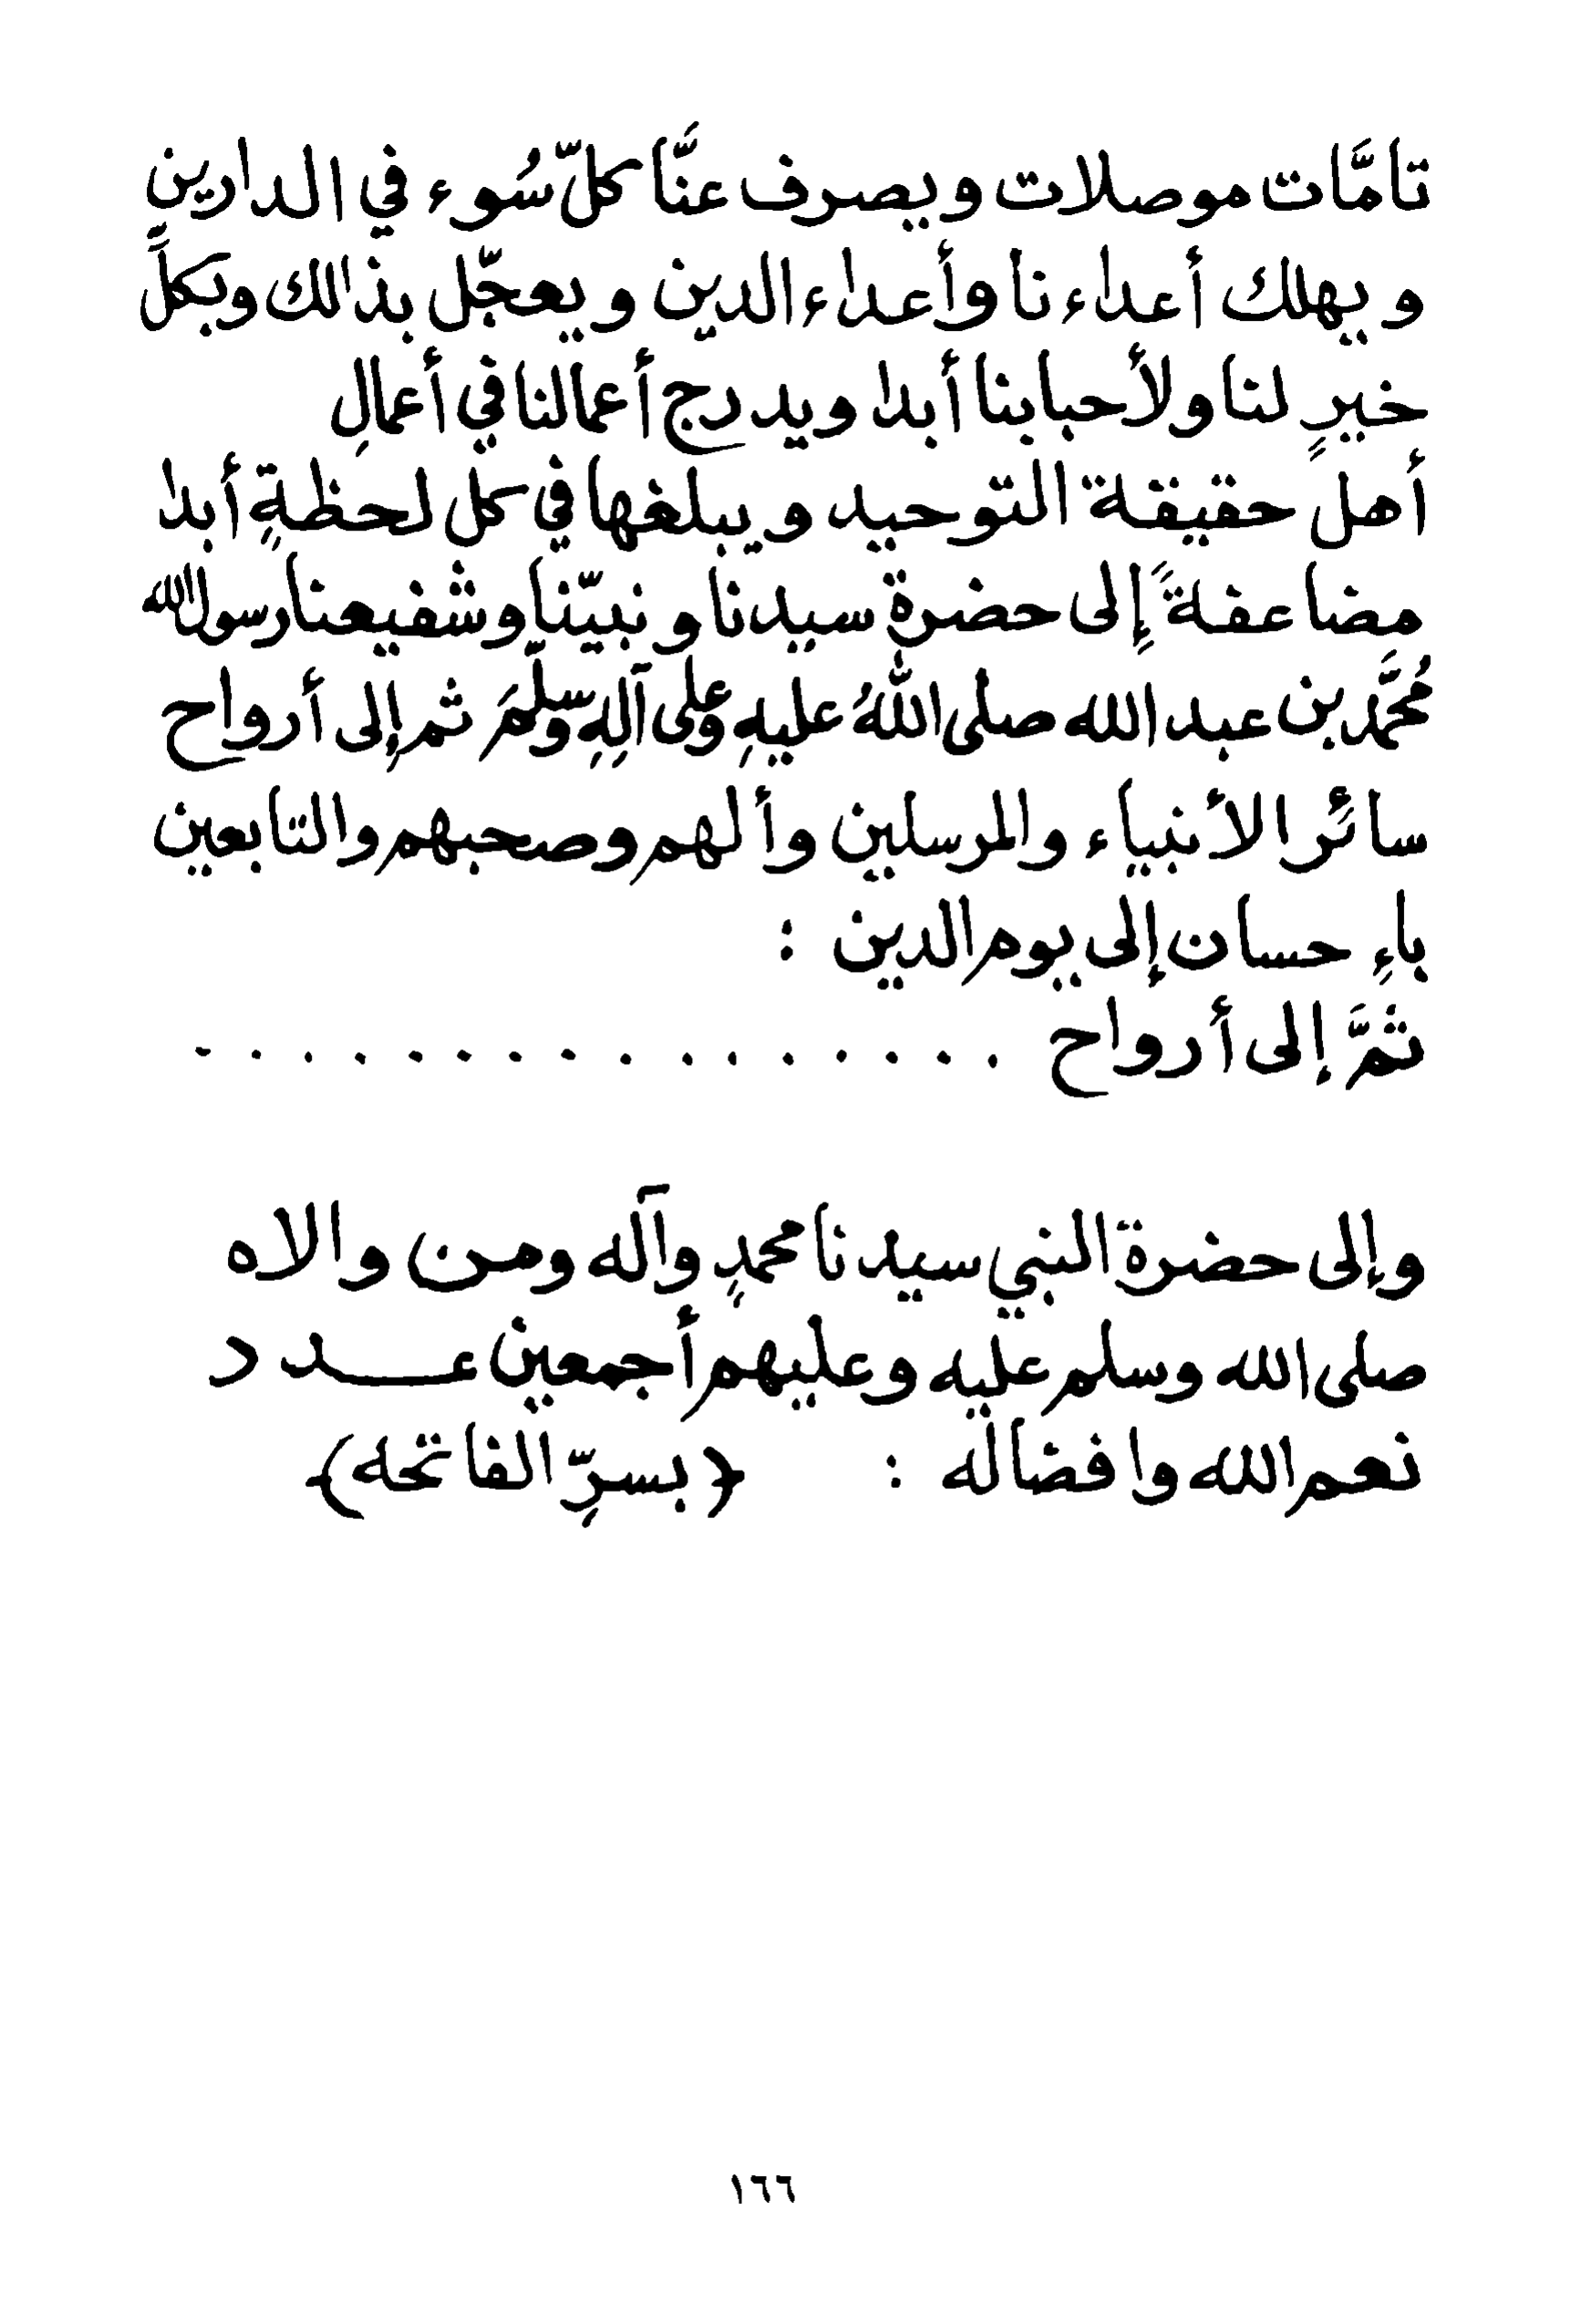 تامَّات موصلات ويصرف عنَّا كلّ سُوء في الدارين
ويهلك أعداءنا وأعداء الدين ويعجّل بذالك وبكلِّ
خيرٍ لنا ولأحبابنا أبدا ويدرج أعمالنا في أعمالِ
أهل حقيقة التوحيد ويبلغها في كل لحظةٍ أبدا
مضاعفةً إلى حضرةِ سيدنا ونبيّنا وشفيعنا رسول الله
مُحَمَّد بن عبد الله صلى اللهُ عليهِ وعلى آلِهِ وسلّمَ ثم إلى أرواح
سائر الأنبياء والمرسلين وألهم وصحبهم والتابعين
باءِحسان إلى يوم الدين :
ثمَّ إلى أرواح . . . . . . . . . . . . . . . .
وإلى حضرة النبي سيدنا محمدٍ وآله ومن والاه
صلى الله وسلم عليه وعليهم أجمعين عــدد
نعم الله وافضاله : ﴿بسرِّ الفاتحه﴾
١٦٦